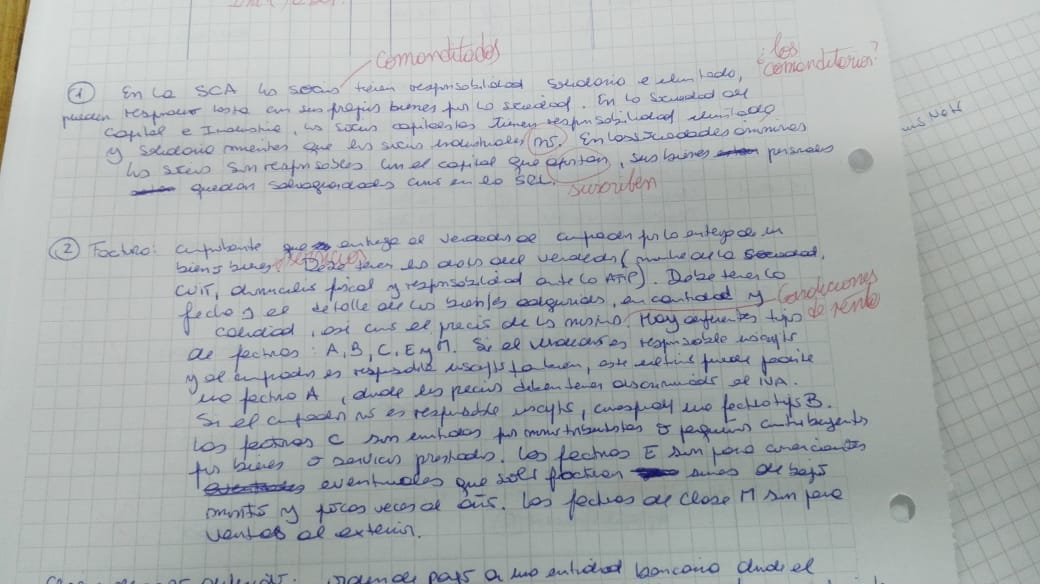 comanditados
¿los
comanditarios?
① En la SCA los socios tienen responsabilidad solidaria e ilimitada,
pueden responder hasta con sus propios bienes por la sociedad. En la Sociedad de
Capital e Industria, los socios capitalistas tienen responsabilidad ilimitada
y solidaria mientras que los socios industriales no. En las sociedades anónimas
los socios son responsables con el capital que aportan, sus bienes personales
quedan salvaguardados como en la SRL.
suscriben
② Factura: comprobante que entrega el vendedor al comprador por la entrega de un
bien o bienes. Debe tener los datos del vendedor (nombre de la sociedad,
servicios
CUIT, domicilio fiscal y responsabilidad ante la AFIP). Debe tener la
fecha y el detalle de los bienes adquiridos, en cantidad y
condiciones
de venta
calidad, así como el precio de los mismos. Hay diferentes tipos
de facturas: A, B, C, E y M. Si el vendedor es responsable inscripto
y el comprador es responsable inscripto también, este último puede pedirle
una factura A, donde los precios deben tener discriminado el IVA.
Si el comprador no es responsable inscripto, corresponde una factura tipo B.
Las facturas C son emitidas por monotributistas o pequeños contribuyentes
por bienes o servicios prestados. Las facturas E son para comerciantes
eventuales que solo facturan sumas de bajo
monto y pocas veces al año. Las facturas de clase M son para
ventas al exterior.
pago a una entidad bancaria donde el